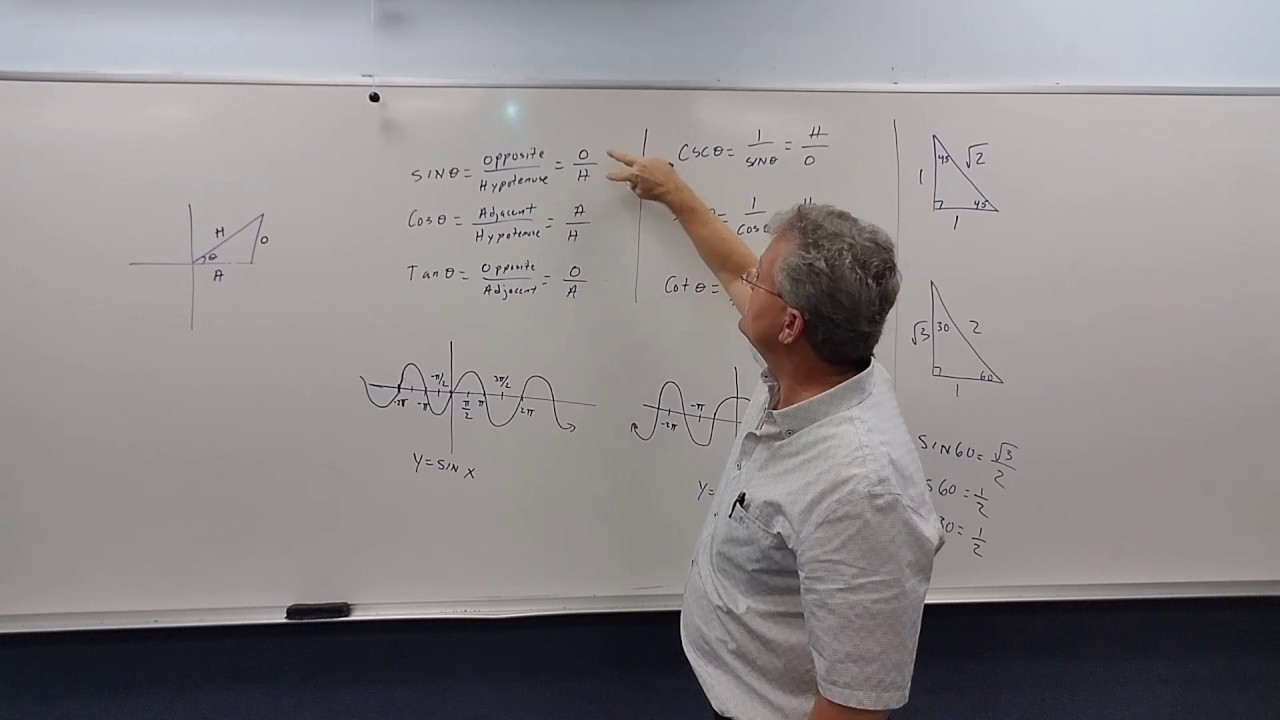 H
O
θ
A
sinθ = Opposite / Hypotenuse = O / H
Cosθ = Adjacent / Hypotenuse = A / H
Tanθ = Opposite / Adjacent = O / A
-2π -π -π/2 π/2 π 3π/2 2π
Y = sin x
Cscθ = 1 / sinθ = H / O
θ = 1 / cosθ = H
Cotθ =
-2π -π
Y =
45
√2
1
45
1
√3
30
2
60
1
SIN60 = √3 / 2
S60 = 1 / 2
30 = 1 / 2